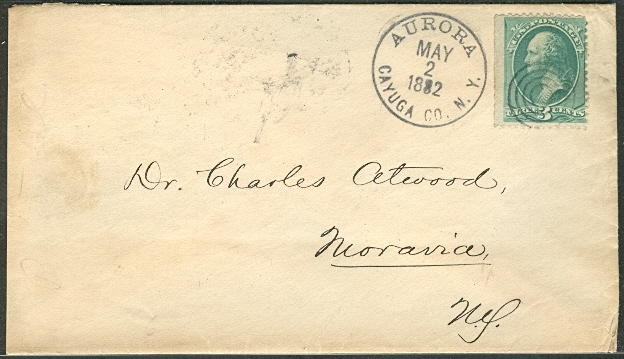 AURORA
MAY
2
1882
CAYUGA CO. N. Y.
U.S. POSTAGE
3 CENTS
Dr. Charles Atwood,
Moravia,
N.Y.